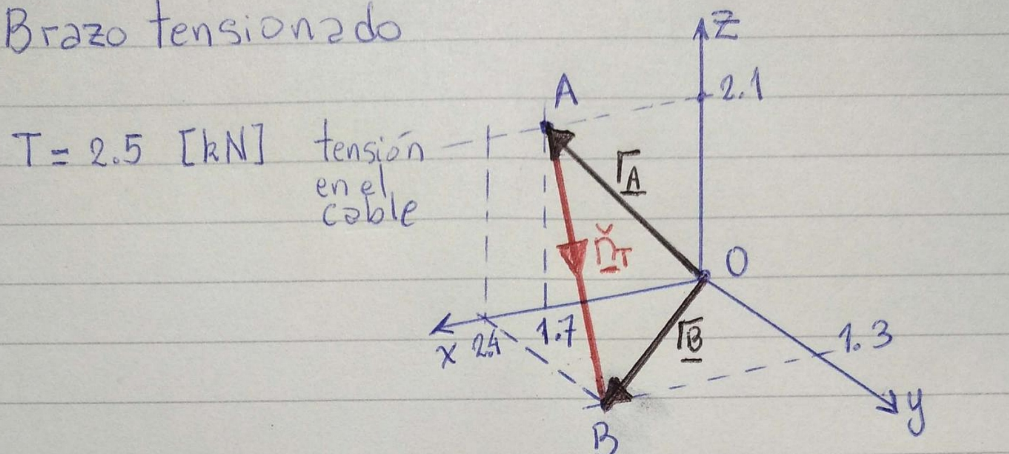 Brazo tensionado
Z
A
2.1
T = 2.5 [kN] tensión
en el
cable
r_A
ň_T
O
x 2.4 1.7
r_B
1.3
B
y